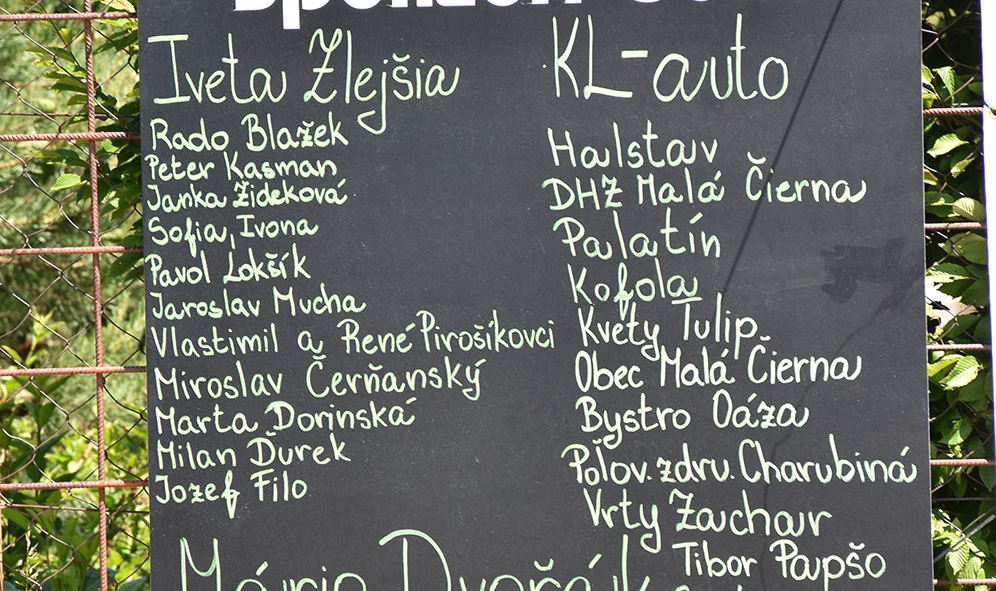 Iveta Zlejšia
Rado Blažek
Peter Kasman
Janka Žideková
Sofia, Ivona
Pavol Lokšík
Jaroslav Mucha
Vlastimil a René Pirošíkovci
Miroslav Čerňanský
Marta Dorinská
Milan Ďurek
Jozef Filo
KL-auto
Halstav
DHZ Malá Čierna
Palatín
Kofola
Kvety Tulip
Obec Malá Čierna
Bystro Oáza
Poľov. zdru. Charubiná
Vrty Zachar
Tibor Papšo
Mário Dvořák